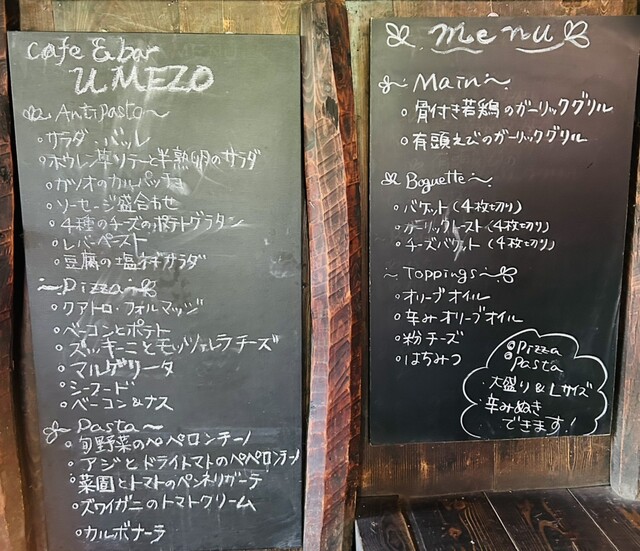 cafe & bar
UMEZO
Antipasto
サラダ バッレ
ホウレン草ソテーと半熟卵のサラダ
カツオのカルパッチョ
ソーセージ盛合わせ
4種のチーズのポテトグラタン
レバーペースト
豆腐の塩ネギサラダ
Pizza
クアトロ・フォルマッジ
ベーコンとポテト
ズッキーニとモッツァレラチーズ
マルゲリータ
シーフード
ベーコン&ナス
Pasta
旬野菜のペペロンチーノ
アジとドライトマトのペペロンチーノ
菜園とトマトのペンネリガーテ
ズワイガニのトマトクリーム
カルボナーラ
menu
Main
骨付き若鶏のガーリックグリル
有頭えびのガーリックグリル
Baguette
バケット(4枚切り)
ガーリックトースト(4枚切り)
チーズバケット(4枚切り)
Toppings
オリーブオイル
辛みオリーブオイル
粉チーズ
はちみつ
Pizza
Pasta
・大盛り&Lサイズ
・辛みぬき
できます!